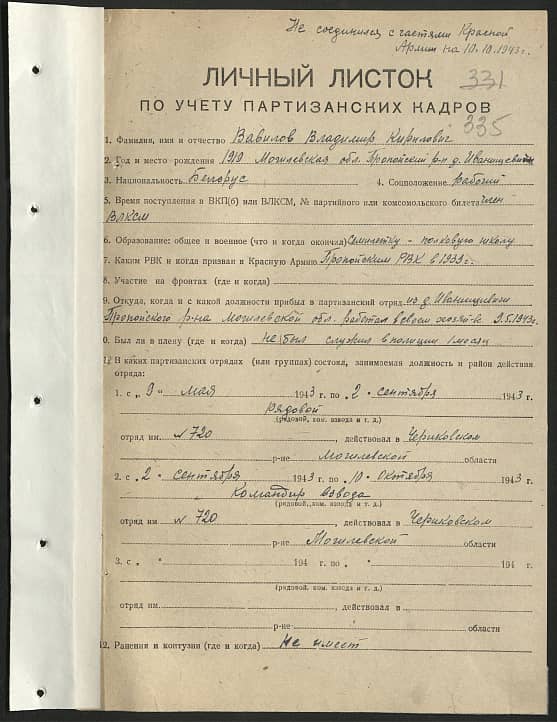 Не соединился с частями Красной
Армии на 10.10.1943 г.
331
ЛИЧНЫЙ ЛИСТОК
ПО УЧЕТУ ПАРТИЗАНСКИХ КАДРОВ
335
1. Фамилия, имя и отчество Вавилов Владимир Кирилович
2. Год и место рождения 1919 Могилевская обл. Пропойский р-н д. Иванищевичи
3. Национальность Белорус 4. Соцположение рабочий
5. Время поступления в ВКП(б) или ВЛКСМ, № партийного или комсомольского билета член
ВЛКСМ
6. Образование: общее и военное (что и когда окончил) Семилетку - полковую школу
7. Каким РВК и когда призван в Красную Армию Пропойским РВК в 1939 г.
8. Участие на фронтах (где и когда)
9. Откуда, когда и с какой должности прибыл в партизанский отряд из д. Иванищевичи
Пропойского р-на Могилевской обл. работал в своем хозяй-ве 9.5.1943г.
10. Был ли в плену (где и когда) не был служил в полиции 1 месяц
11. В каких партизанских отрядах (или группах) состоял, занимаемая должность и район действия
отряда:
1. с „ 9 " мая 1943 г. по „ 2 " сентября 1943 г.
Рядовой
(рядовой, ком. взвода и т. д.)
отряд им. № 720, действовал в Чериковском
р-не Могилевской области
2. с „ 2 " сентября 1943 г. по „ 10 " Октября 1943 г.
Командир взвода
(рядовой, ком. взвода и т. д.)
отряд им. № 720, действовал в Чериковском
р-не Могилевской области
3. с „ " 194 г. по „ " 194 г.
(рядовой, ком. взвода и т. д.)
отряд им. , действовал в
р-не области
12. Ранения и контузии (где и когда) Не имеет